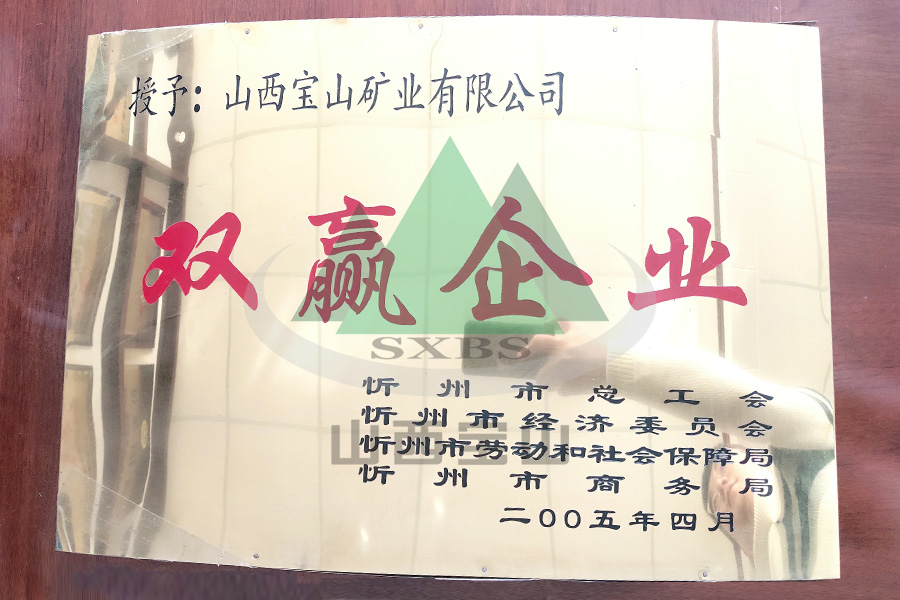 授予：山西宝山矿业有限公司
双赢企业
SXBS
山西宝山
忻州市总工会
忻州市经济委员会
忻州市劳动和社会保障局
忻州市商务局
二00五年四月